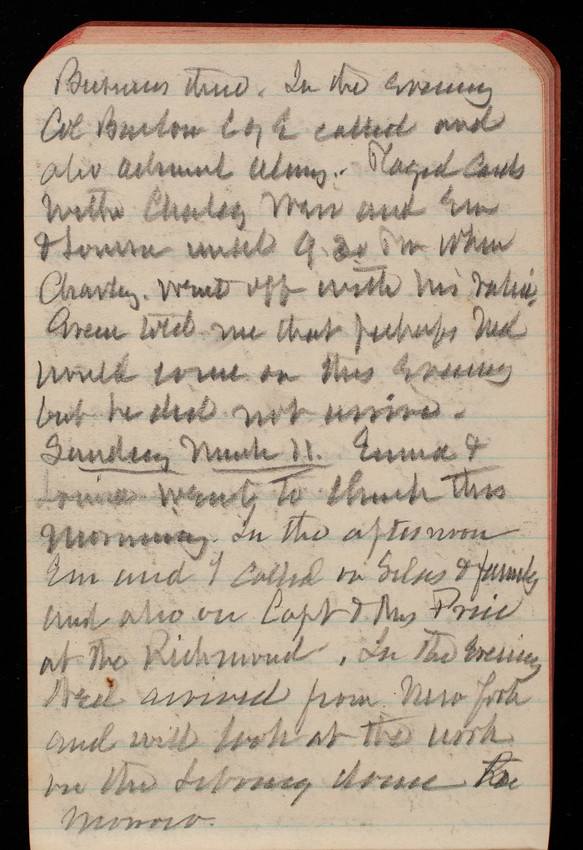 Business there. In the evening
Col Barlow C of E called and
also Admiral Almy. Played Cards
with Charley Warr and Em
& Louise until 9.20 Pm when
Charley. went off with his valise
Green told me that perhaps Ned
would come on this evening
but he did not arrive.
Sunday March 11. Emma &
Louise went to Church this
morning. In the afternoon
Em and I called on Silas & family
and also on Capt & Mrs Price
at the Richmond. In the Evening
Ned arrived from New York
and will look at the work
on the Library dome to
morrow.